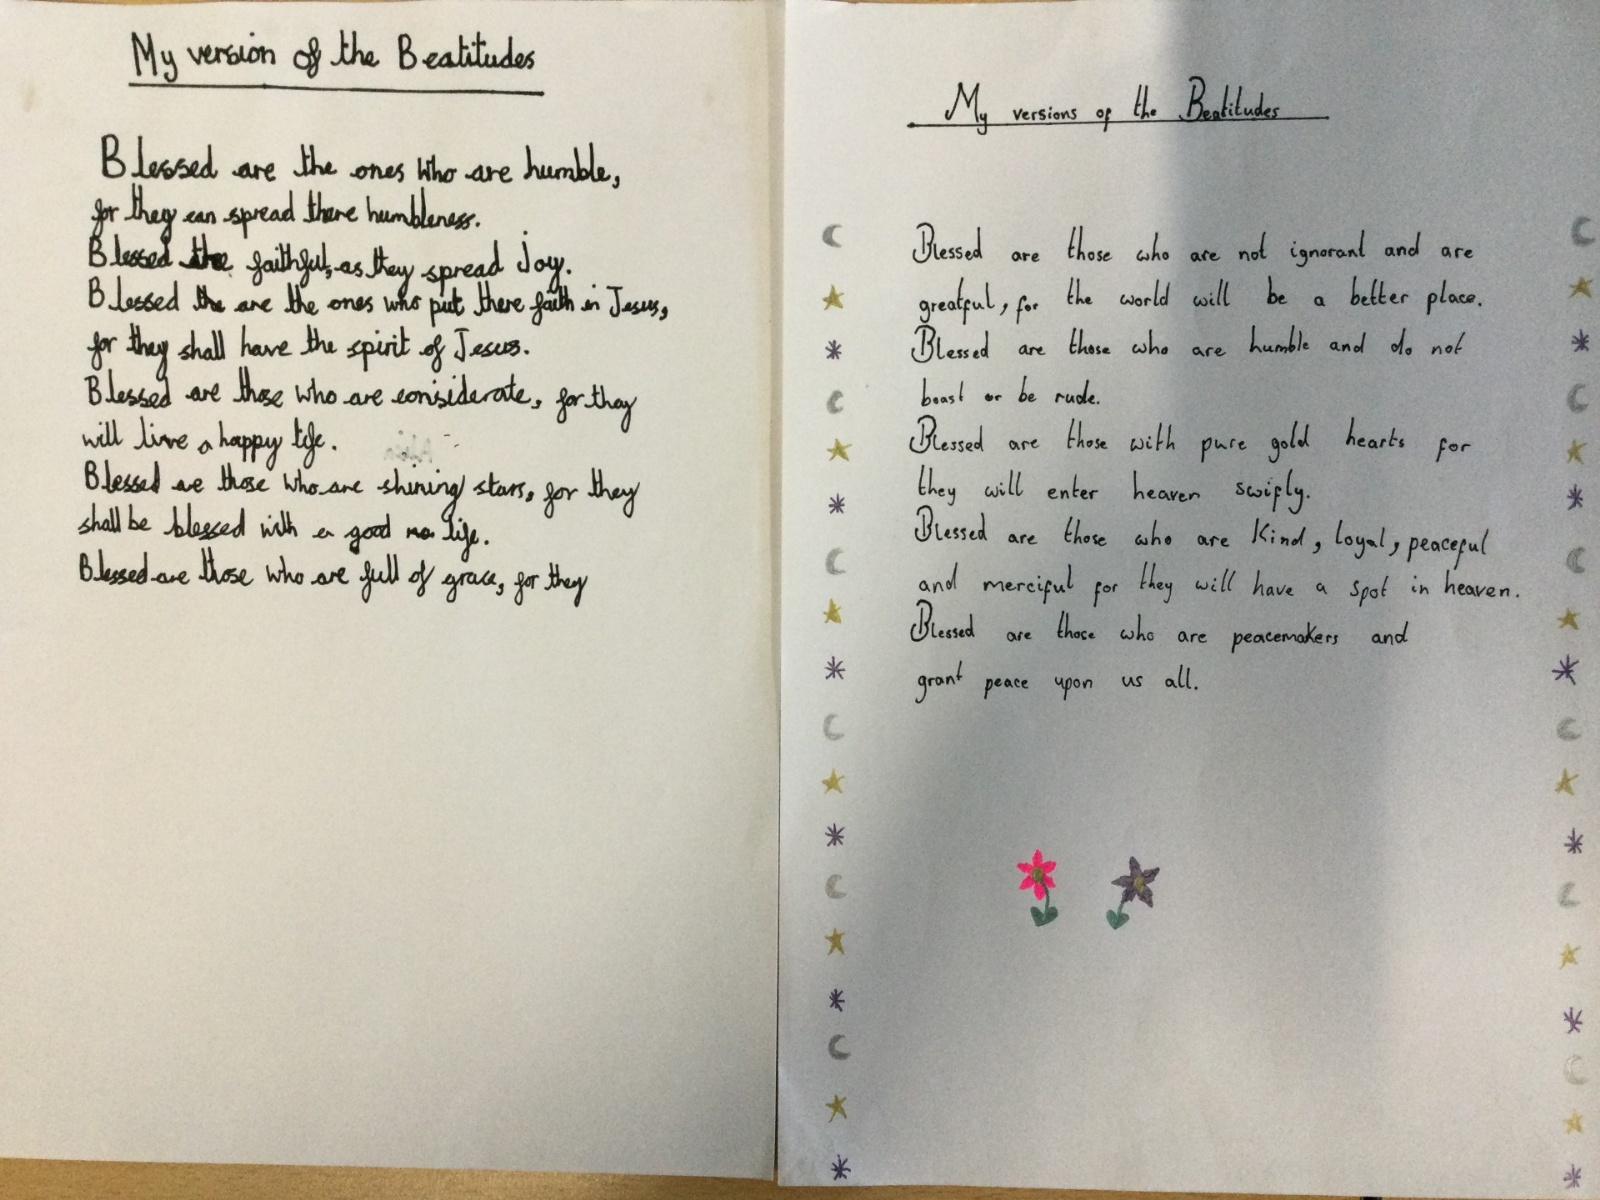 My version of the Beatitudes
Blessed are the ones who are humble,
for they can spread there humbleness.
Blessed the faithful, as they spread Joy.
Blessed the are the ones who put there faith in Jesus,
for they shall have the spirit of Jesus.
Blessed are those who are considerate, for they
will live a happy life.
Blessed are those who are shining stars, for they
shall be blessed with a good life.
Blessed are those who are full of grace, for they
My versions of the Beatitudes
Blessed are those who are not ignorant and are
greatful, for the world will be a better place.
Blessed are those who are humble and do not
boast or be rude.
Blessed are those with pure gold hearts for
they will enter heaven swifly.
Blessed are those who are Kind, loyal, peaceful
and merciful for they will have a spot in heaven.
Blessed are those who are peacemakers and
grant peace upon us all.